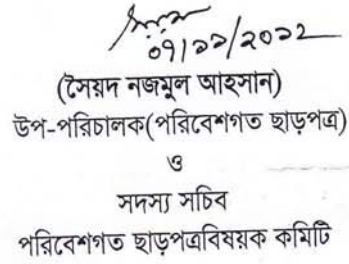 ০৭/১১/২০১২
(সৈয়দ নজমুল আহসান)
উপ-পরিচালক(পরিবেশগত ছাড়পত্র)
ও
সদস্য সচিব
পরিবেশগত ছাড়পত্রবিষয়ক কমিটি